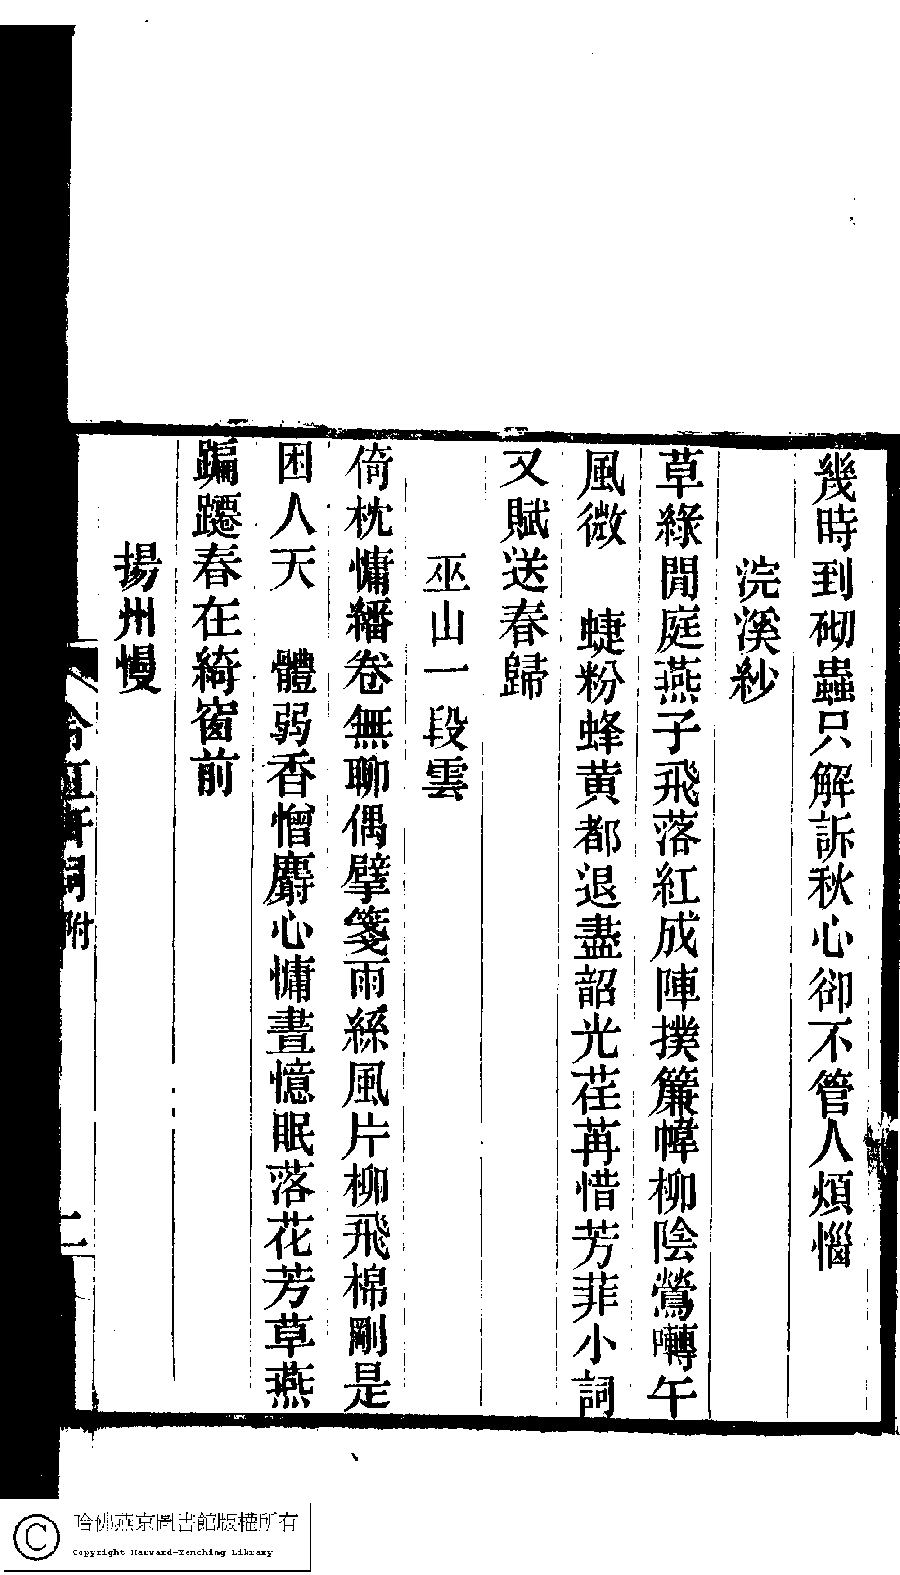 幾時到砌蟲只解訴秋心卻不管人煩惱
浣溪紗
草綠閒庭燕子飛落紅成陣撲簾幃柳陰鶯囀午
風微　蜨粉蜂黃都退盡韶光荏苒惜芳菲小詞
又賦送春歸
巫山一段雲
倚枕慵繙卷無聊偶擘箋雨絲風片柳飛棉剛是
困人天　體弱香憎麝心慵晝憶眠落花芳草燕
蹁躚春在綺窗前
揚州慢
詞附
二
哈佛燕京圖書館版權所有
Copyright Harvard-Yenching Library